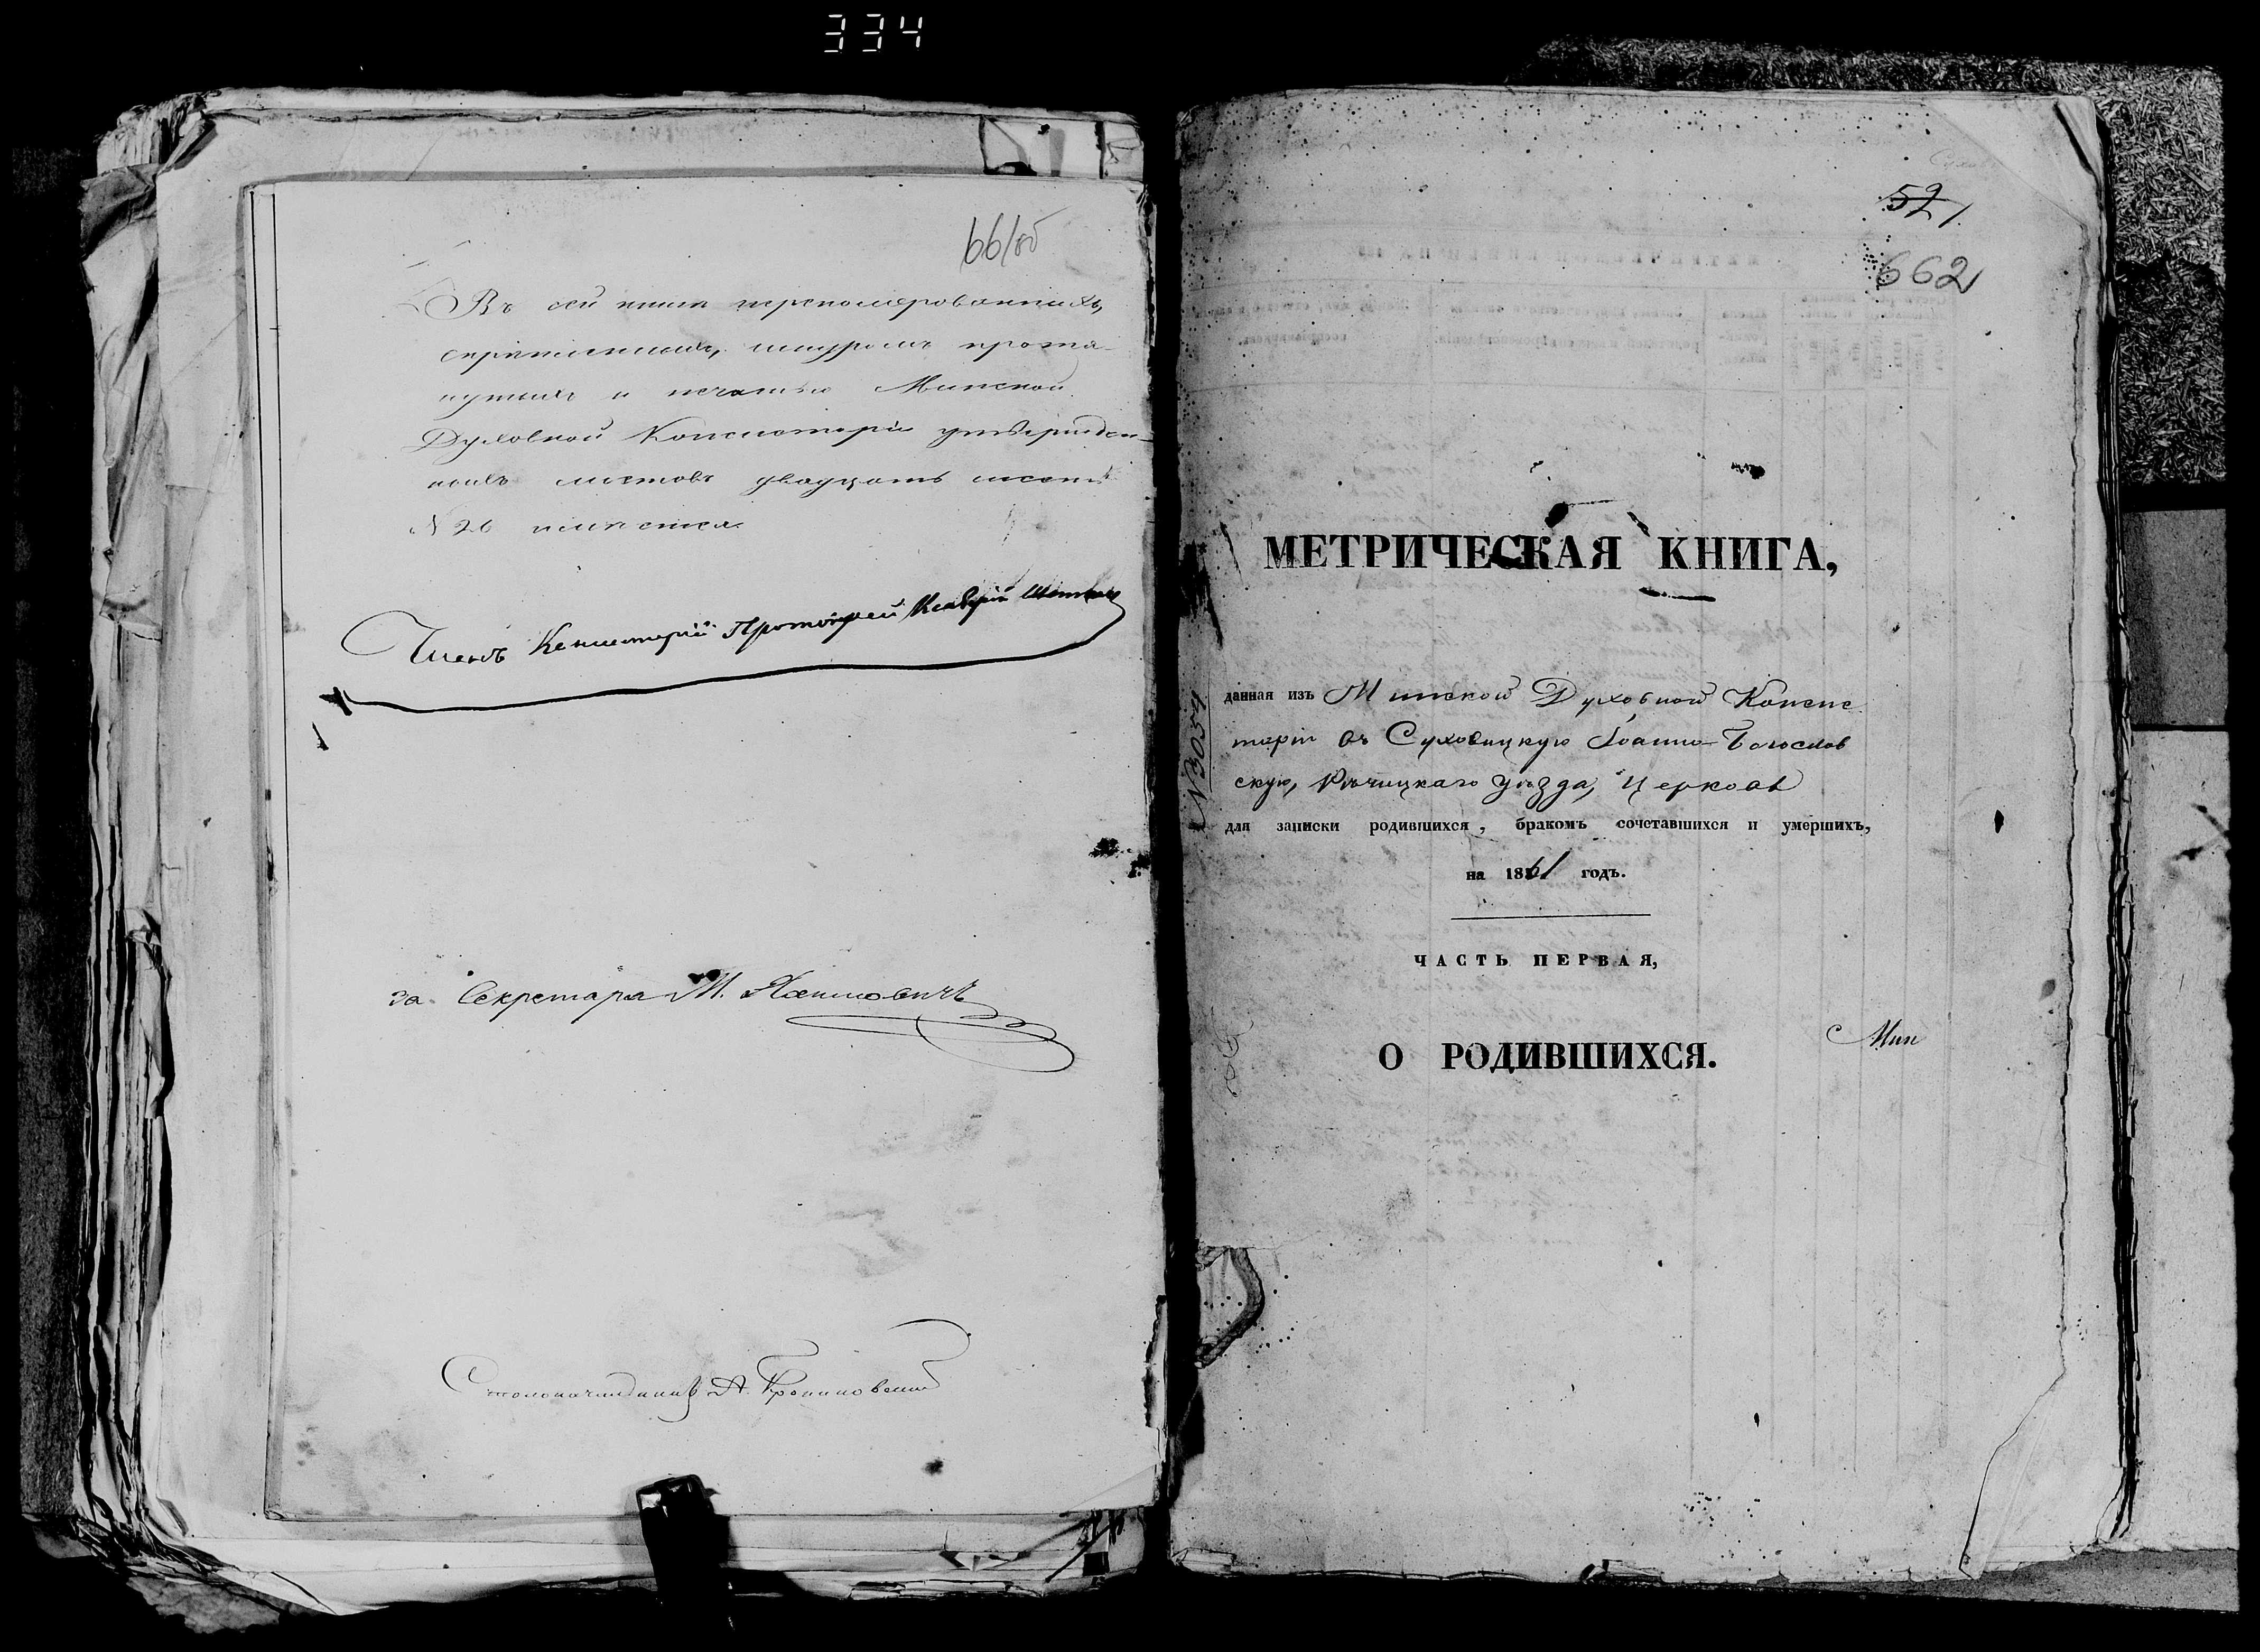 334
661об
Въ сей книгѣ переномерованныхъ,
скрѣпленныхъ, шнуромъ протя-
нутыхъ и печатью Минской
Духовной Консисторіи утвержден-
ныхъ листовъ двадцать шесть
№ 26 имѣется
Членъ Консисторіи Протоіерей
за Секретаря М.
Столоначальникъ А.
521
662
МЕТРИЧЕСКАЯ КНИГА,
данная изъ Минской Духовной Консис
торіи въ Суховицкую Іоанно-Богослов
скую, Рѣчицкаго уѣзда, церковь
для записки родившихся, бракомъ сочетавшихся и умершихъ,
на 1861 годъ.
ЧАСТЬ ПЕРВАЯ,
О РОДИВШИХСЯ.
Мин
№3054